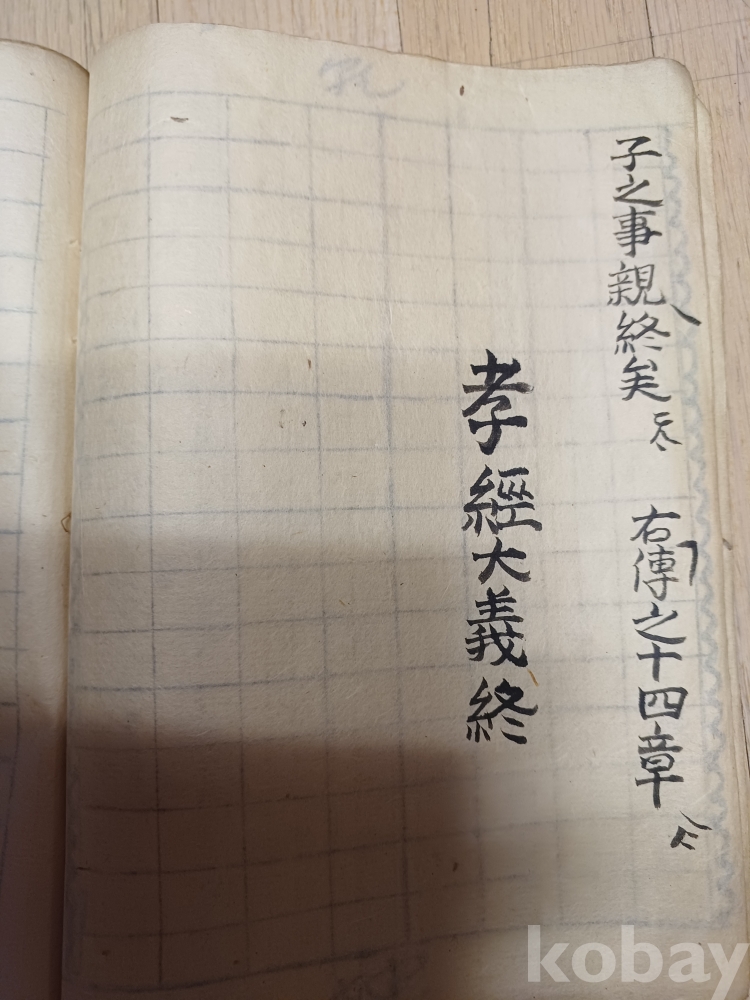 子之事親終矣 右傳之十四章
孝經大義終
kobay